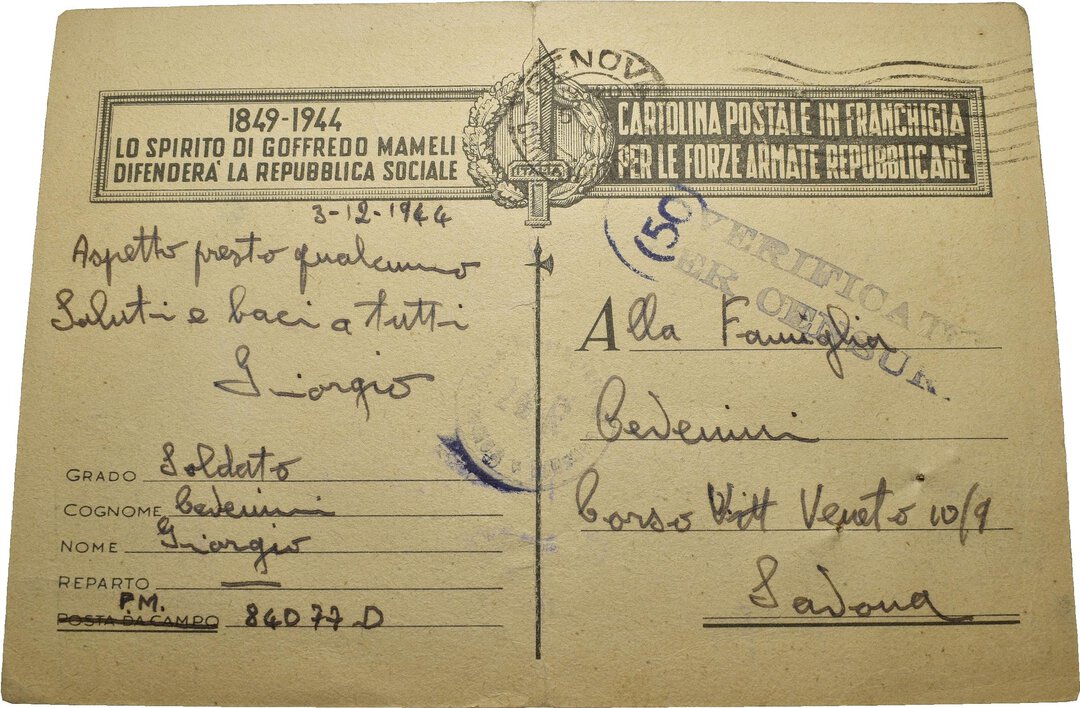 1849-1944
LO SPIRITO DI GOFFREDO MAMELI
DIFENDERA' LA REPUBBLICA SOCIALE
ITALIA
CARTOLINA POSTALE IN FRANCHIGIA
PER LE FORZE ARMATE REPUBBLICANE
3-12-1944
Aspetto presto qualcuno
Saluti e baci a tutti
Giorgio
GRADO Soldato
COGNOME Cedemini
NOME Giorgio
REPARTO —
P.M.
POSTA DA CAMPO 84077.D
50
VERIFICAT
ER CENSUR
Alla Famiglia
Cedemini
Corso Vitt Veneto 10/9
Savona